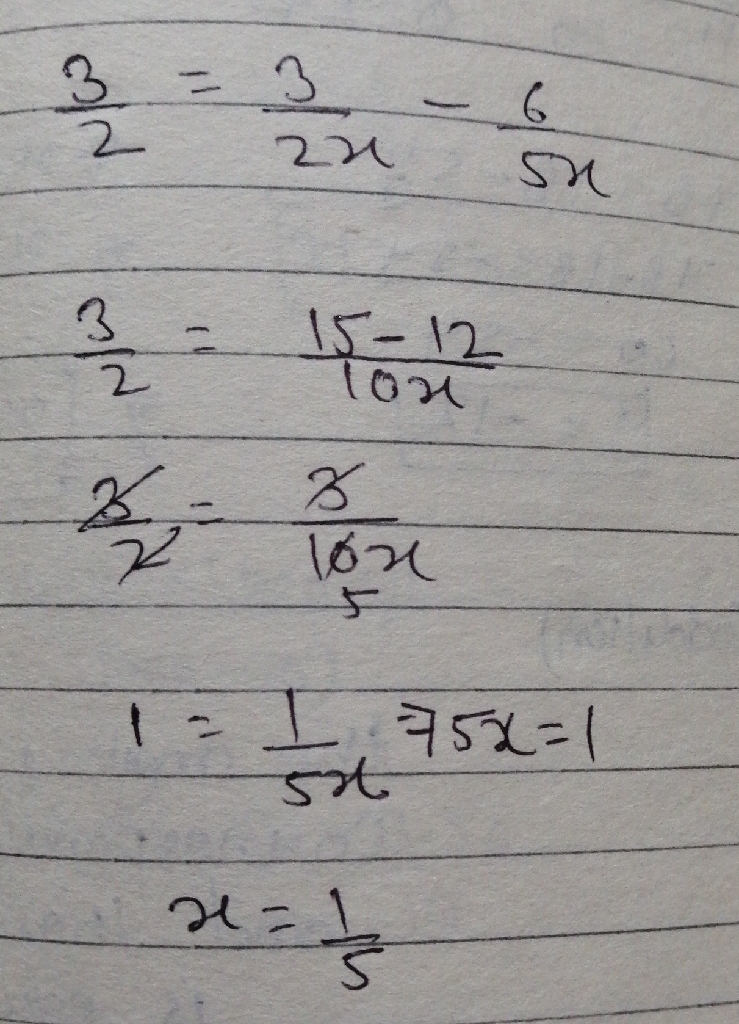 3/2 = 3/2x - 6/5x
3/2 = 15-12/10x
3/2 = 3/10x
5
1 = 1/5x ⇒ 5x = 1
x = 1/5